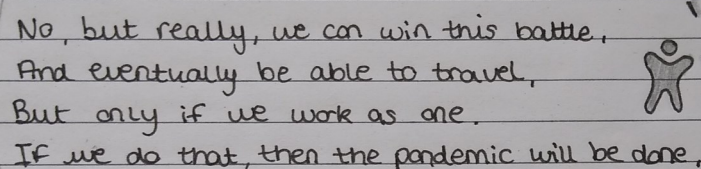 No, but really, we can win this battle,
And eventually be able to travel,
But only if we work as one.
If we do that, then the pandemic will be done,